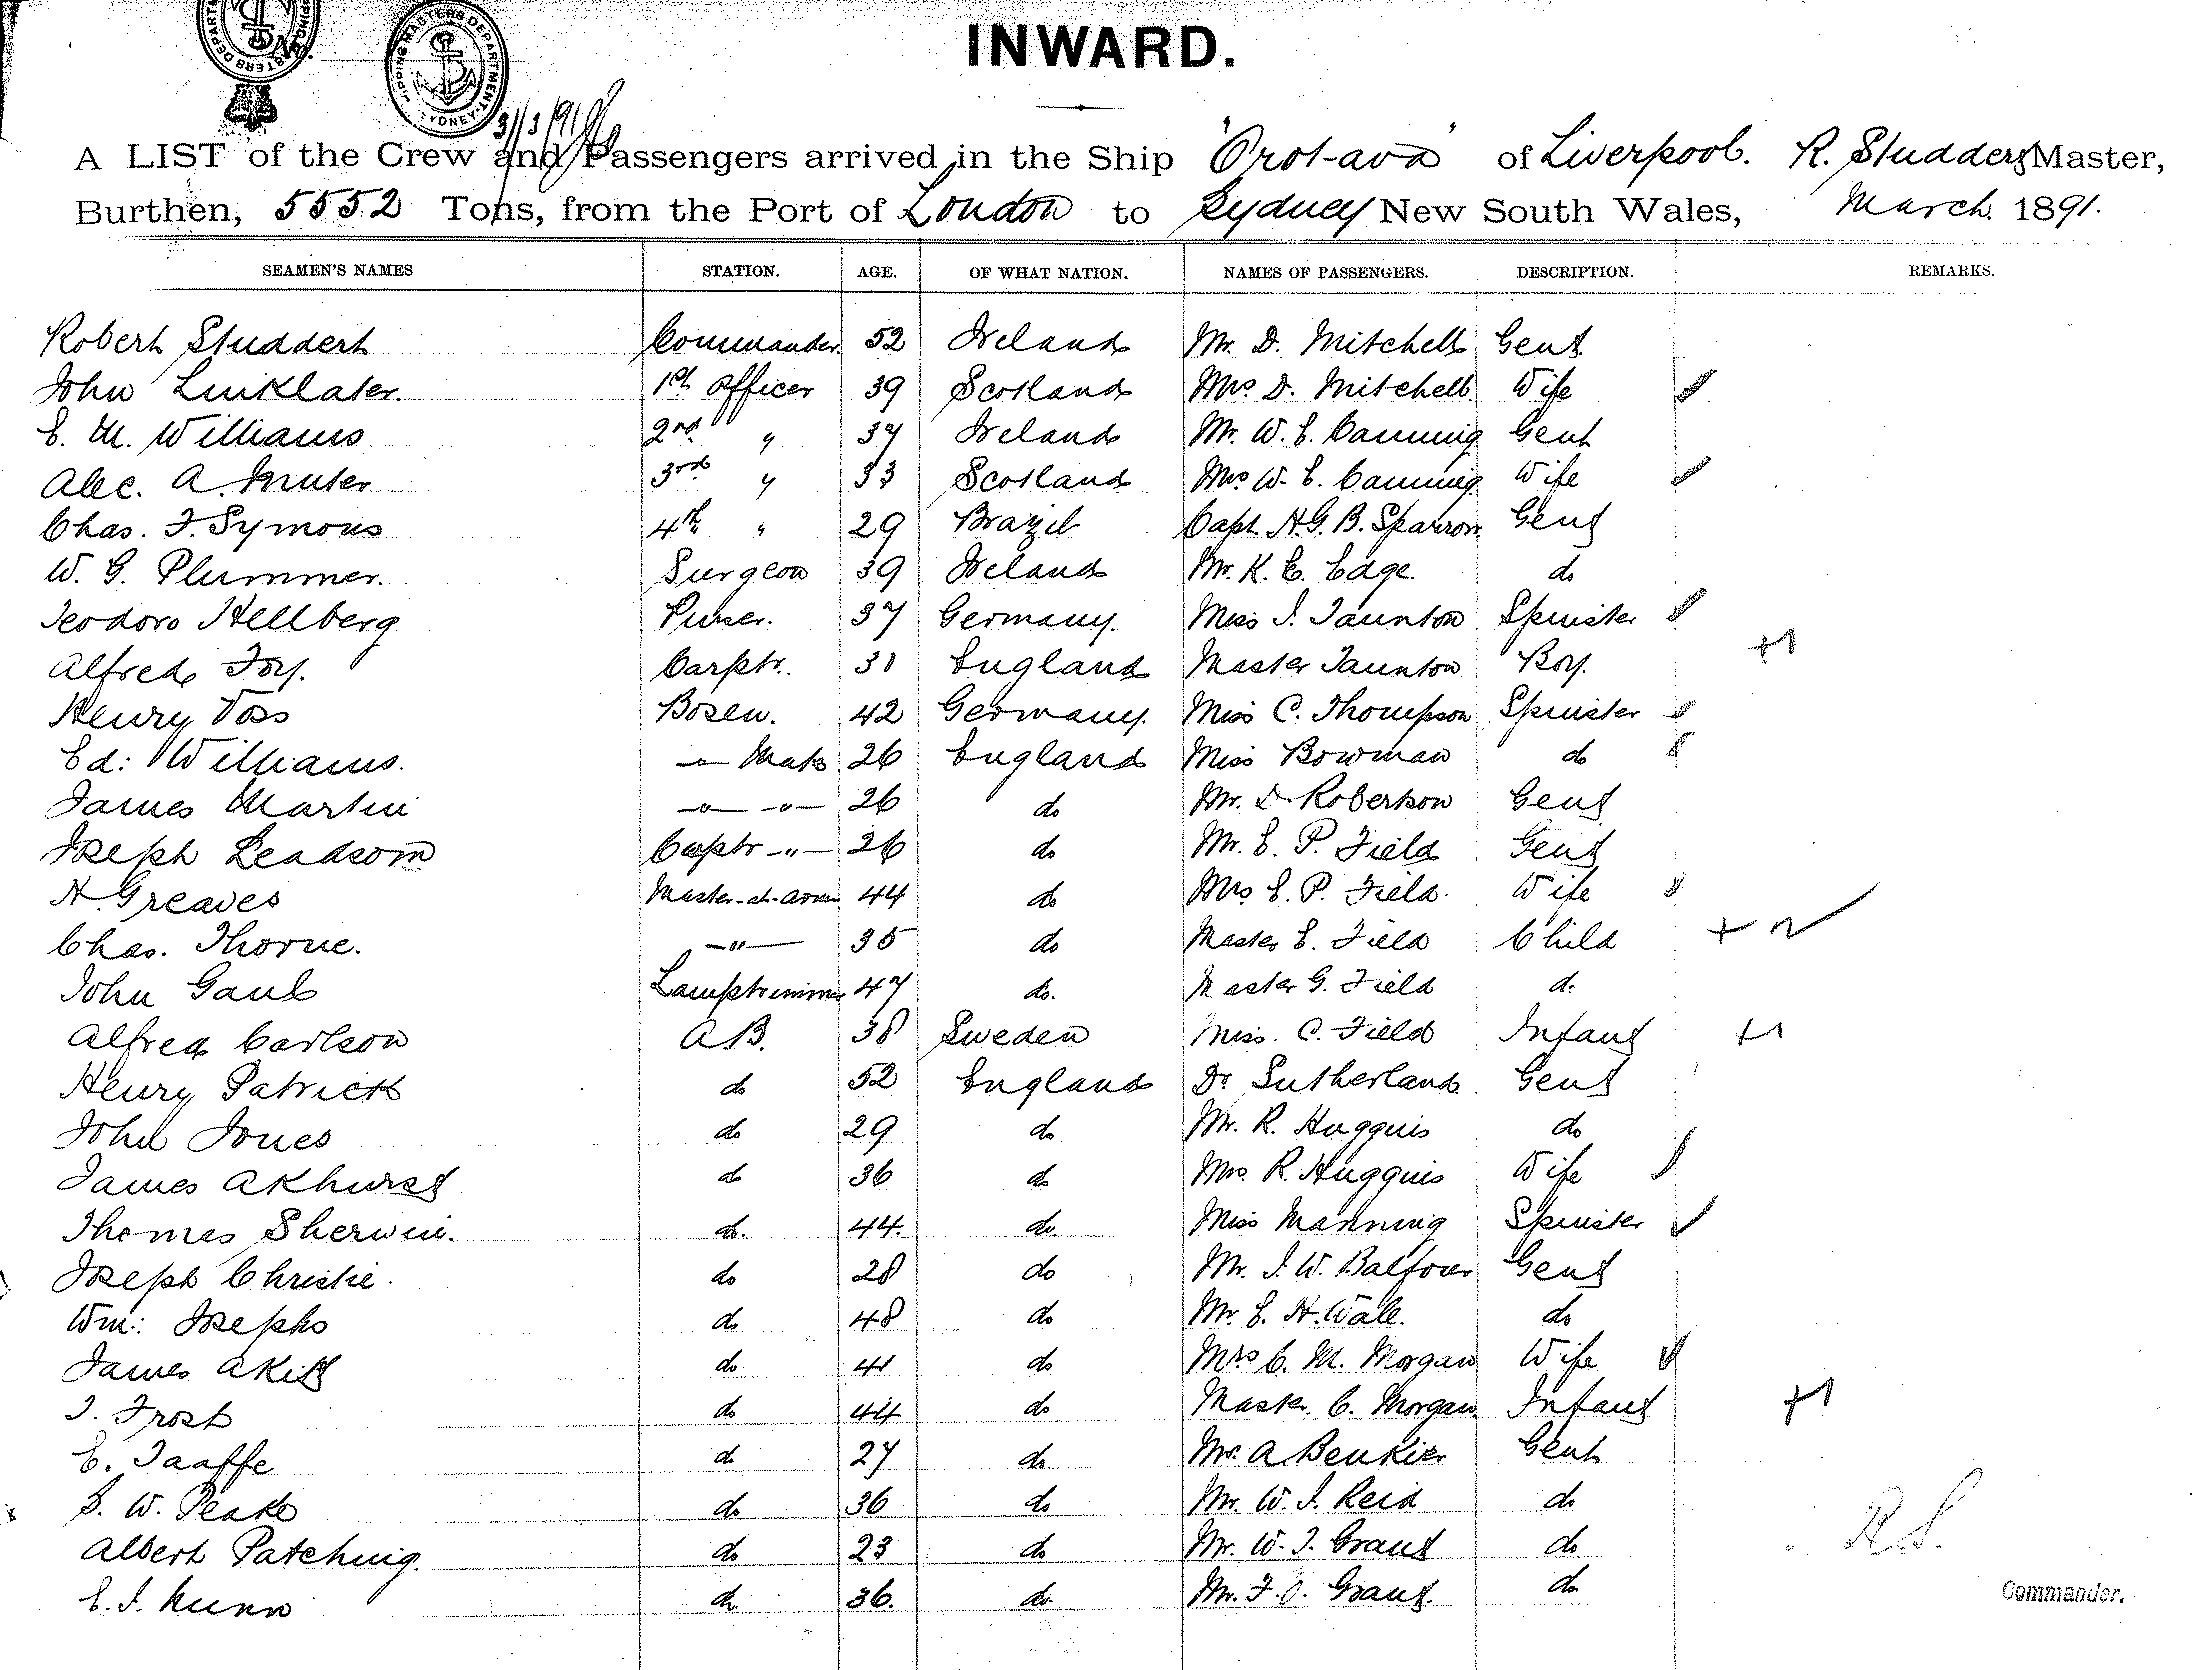 INWARD.
SHIPPING MASTERS DEPARTMENT. SYDNEY.
A LIST of the Crew and Passengers arrived in the Ship "Orotava" of Liverpool. R. Studdert Master,
Burthen, 5552 Tons, from the Port of London to Sydney New South Wales, March 1891.
SEAMEN'S NAMES STATION. AGE. OF WHAT NATION. NAMES OF PASSENGERS. DESCRIPTION. REMARKS.
Robert Studdert Commander 52 Ireland Mr. D. Mitchell Gent
John Linklater. 1st Officer 39 Scotland Mrs D. Mitchell Wife
E. M. Williams 2nd " 37 Ireland Mr. W. E. Canning Gent
Alec. A. 3rd " 33 Scotland Mrs W. E. Canning Wife
Chas. F. Symons 4th " 29 Brazil Capt. H.G.B. Sparrow Gent
W. G. Plummer. Surgeon 39 Ireland Mr. K. E. Edge do
Teodoro Hellberg Purser. 37 Germany. Miss I. Taunton Spinster
Alfred Foy. Carptr. 31 England Master Taunton Boy. +1
Henry Voss Bosen. 42 Germany. Miss C. Thompson Spinster
Ed: Williams. -"- Mate 26 England Miss Bowman do
James Martin -"- -"- 26 do Mr. D Robertson Gent
Joseph Leadsom Carptr -"- 26 do Mr. E. P. Field Gent
H. Greaves Master-at-arms 44 do Mrs E. P. Field. Wife
Chas. Thorne. -"- 35 do Master E. Field Child + 2
John Gaul Lamptrimmer 47 do. Master G. Field do
Alfred Carlson A.B. 38 Sweden Miss. C. Field Infant +1
Henry Patrick do 52 England Dr Sutherland Gent
John Jones do 29 do Mr. R. Huggins do
James Akhurst do 36 do Mrs R. Huggins Wife
Thomas Sherwin. do. 44. do. Miss Manning Spinster
Joseph Christie. do 28 do Mr. J. W. Balfour Gent
Wm: Josephs do 48 do Mr. E. H. Wall. do
James do 41 do Mrs C. M. Morgan Wife
J. Frost do 44 do Master C. Morgan Infant +1
E. Taaffe do 27 do Mr. A Benkier Gent
S. W. Peake do 36 do Mr. W. J. Reid do
Albert Patching. do 23 do Mr. W. J. Grant do
E. J. Nunn do 36. do Mr. F. Grant. do
R.S.
Commander.